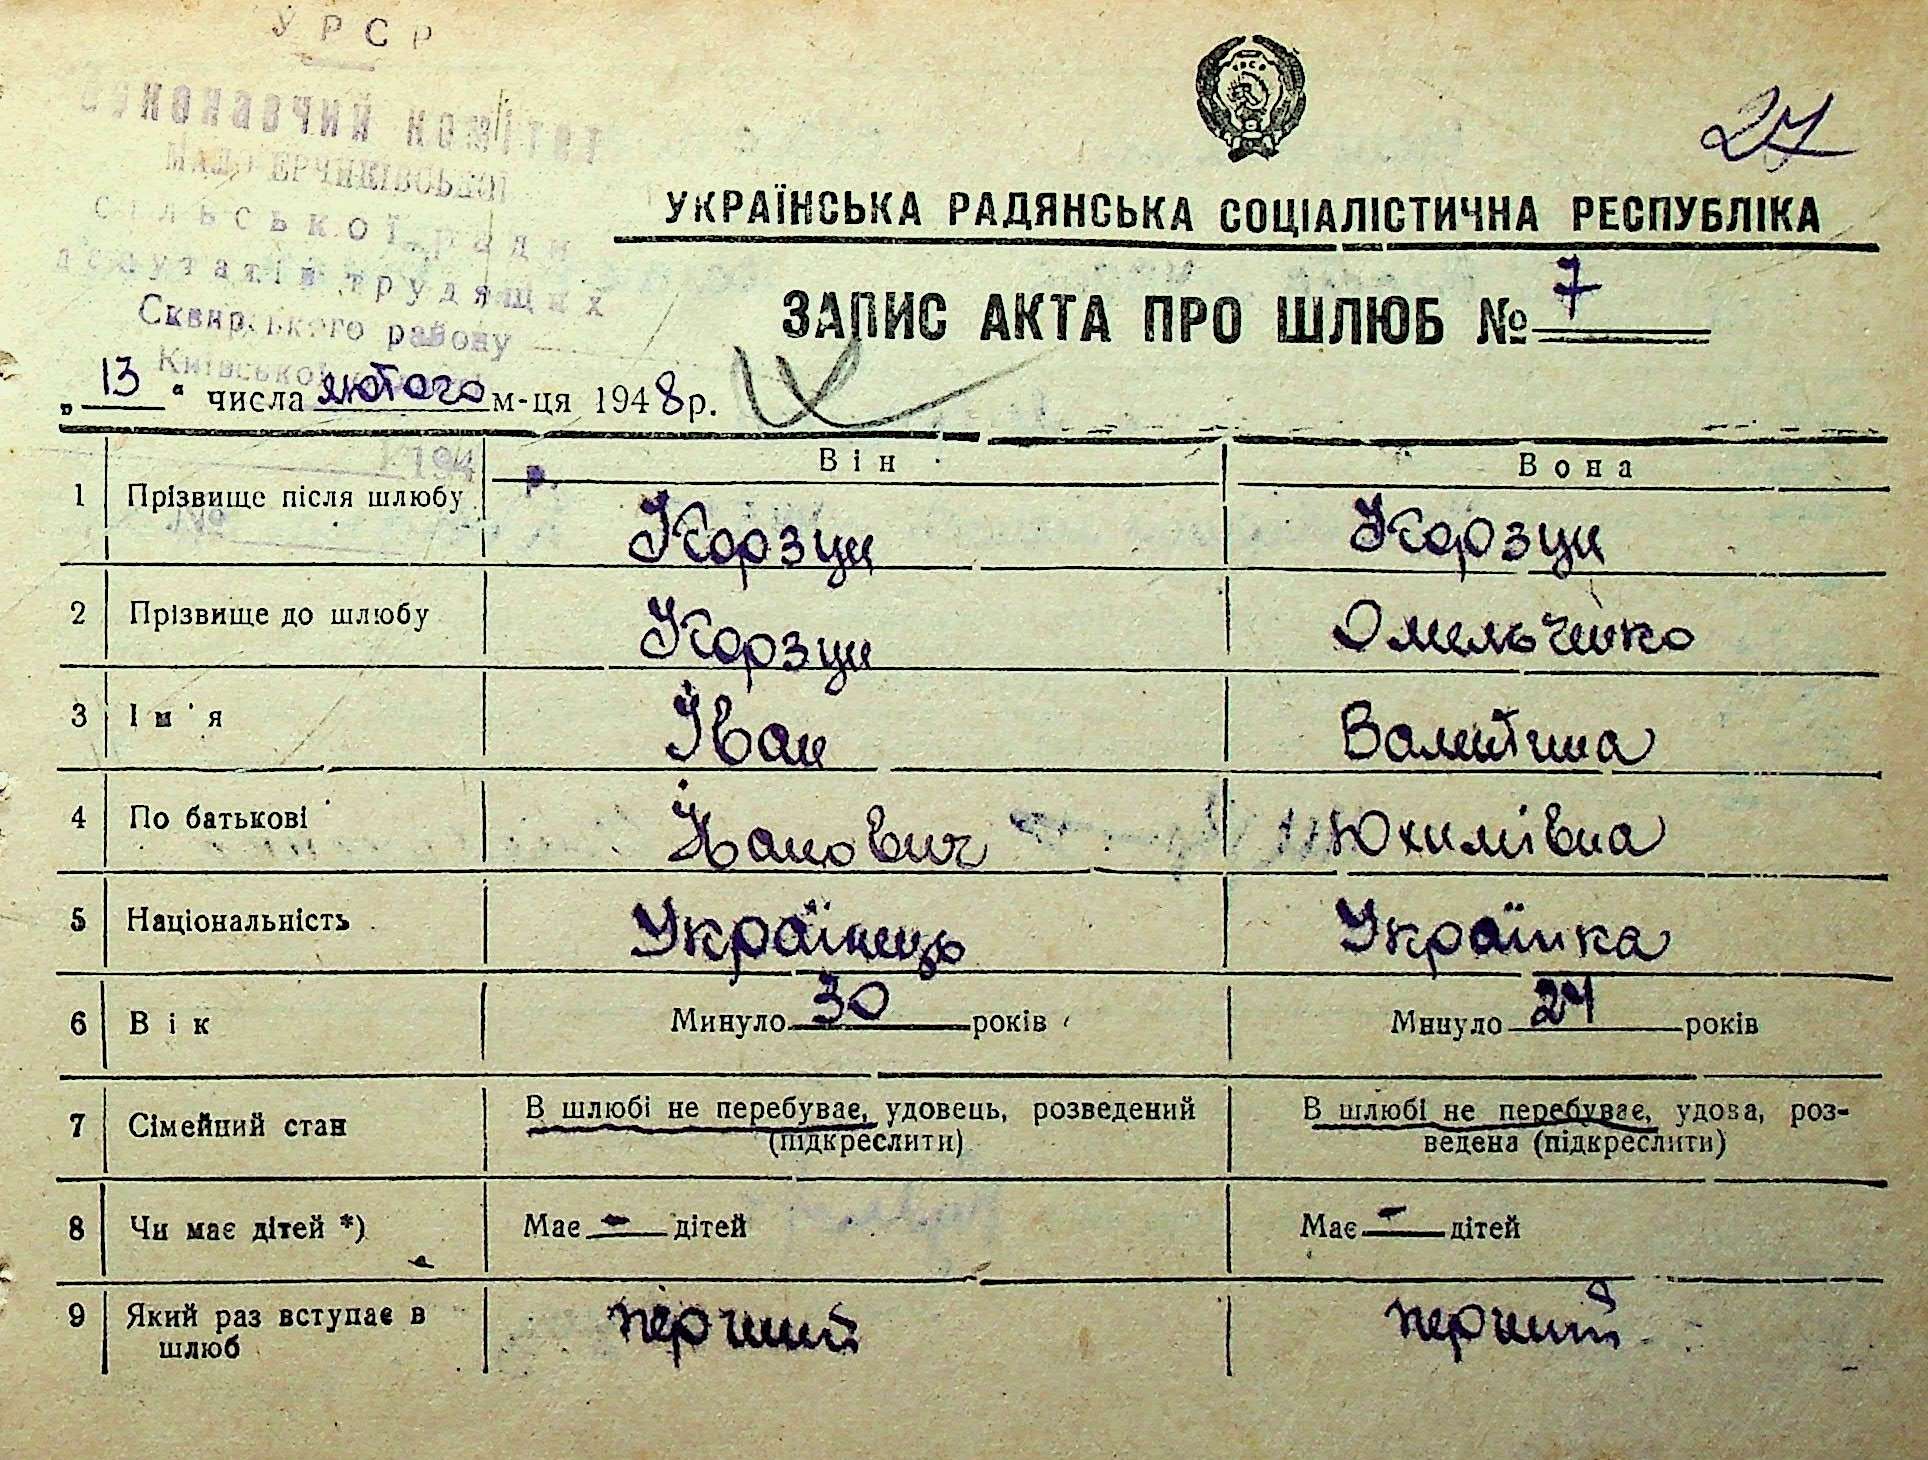 УРСР
Виконавчий комітет
МАЛО ЕРЧИКІВСЬКОЇ
сільської ради
депутатів трудящих
Сквирського району
Київської
194 р.
№
27
УКРАЇНСЬКА РАДЯНСЬКА СОЦІАЛІСТИЧНА РЕСПУБЛІКА
ЗАПИС АКТА ПРО ШЛЮБ № 7
„13“ числа лютого м-ця 1948 р.
Він Вона
1 Прізвище після шлюбу Корзун Корзун
2 Прізвище до шлюбу Корзун Омельченко
3 Ім'я Іван Валентина
4 По батькові Юхимівна
5 Національність Українець Українка
6 Вік Минуло 30 років Минуло 24 років
7 Сімейний стан В шлюбі не перебуває, удовець, розведений В шлюбі не перебуває, удова, роз-
(підкреслити) ведена (підкреслити)
8 Чи має дітей *) Має — дітей Має — дітей
9 Який раз вступає в перший перший
шлюб